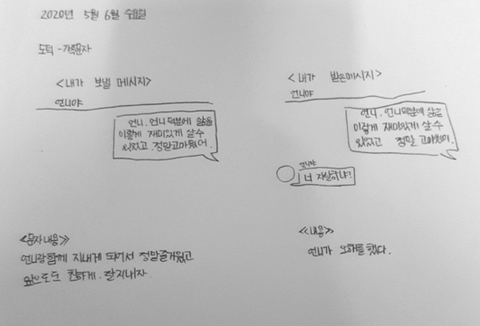 2020년 5월 6일 수요일
도덕 -가족문자
<내가 보낼 메시지>
언니야
언니, 언니덕분에 삶을
이렇게 재미있게 살수
있었고 정말고마웠어.
<문자내용>
언니랑함께 지내게 되어서 정말즐거웠고
앞으로도 친하게. 잘지내자
<내가 받은메시지>
언니야
언니, 언니덕분에 삶을
이렇게 재미있게 살수
있었고 정말 고마웠어.
언니야
너 자살하냐?
<내용>
언니가 오해를 했다.